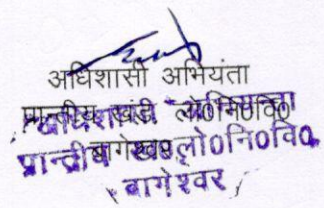 अधिशासी अभियंता
प्रान्तीय खंड लो०नि०वि०
बागेश्वर
अधिशासी अभियन्ता
प्रान्तीय खण्ड लो०नि०वि०
बागेश्वर